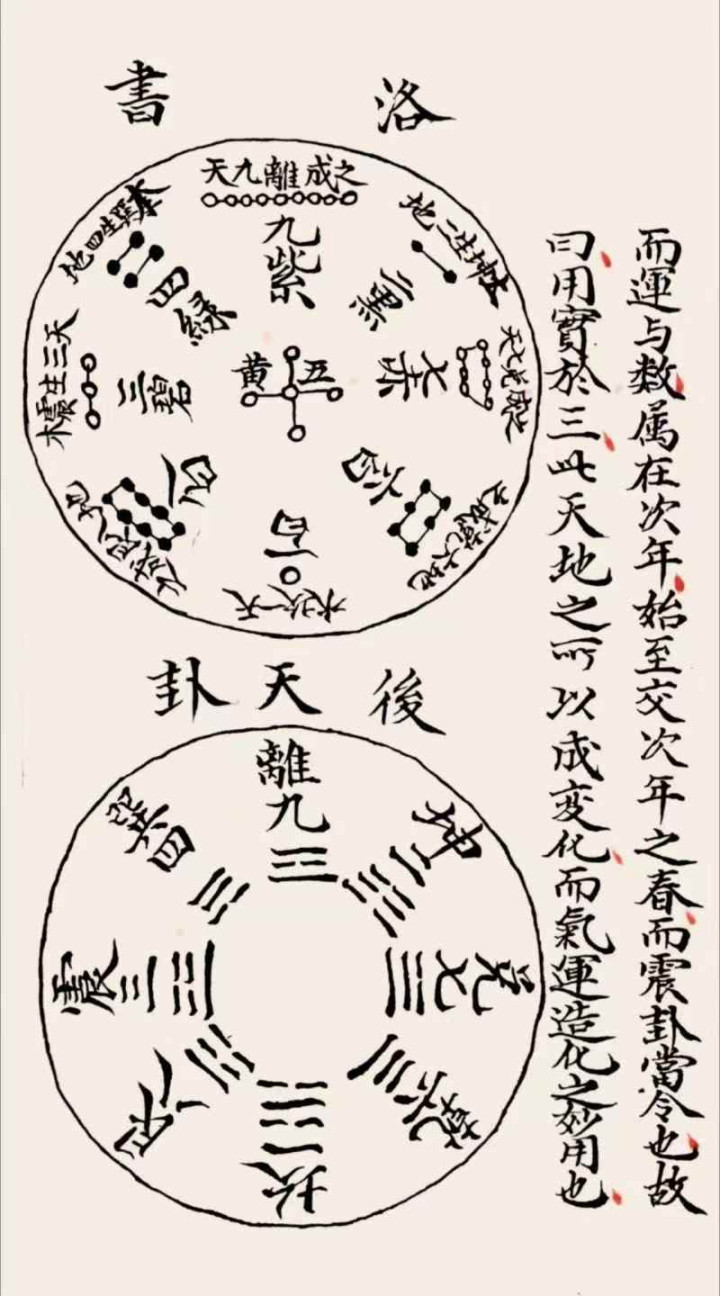 而運与数属在次年始至交次年之春而震卦當令也故
曰用實於三此天地之所以成变化而氣運造化之妙用也
洛書
天九離成之
九紫
地二生坤
二黑
天七兌成之
七赤
六白
天一坎水
一白
八白
天三生震木
三碧
地四生巽木
四緑
五黄
後天卦
離九
坤二
兌七
乾六
坎一
艮八
震三
巽四